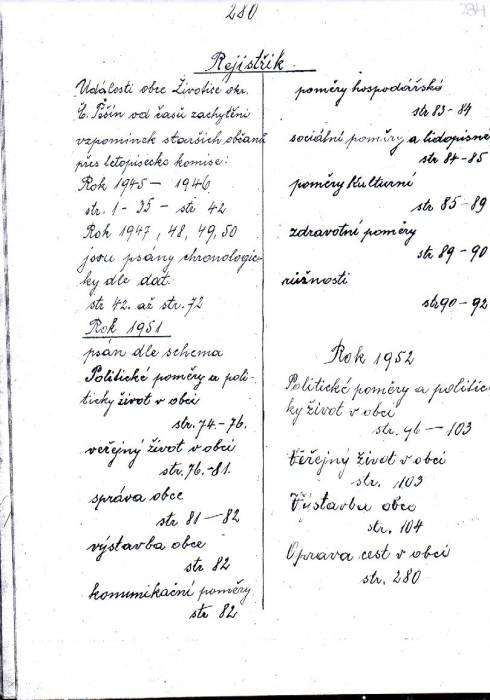 280
234
Rejistřík.
Události obce Životic okr.
Č. Těšín od časů zachytění
vzpomínek starších občanů
přes letopisecko komise:
Rok 1945 - 1946
str. 1 - 35 - str 42
Rok 1947, 48, 49, 50
jsou psány chronologic-
ky dle dat.
str 42. až str. 72
Rok 1951
psán dle schema
Politické poměry a poli-
ticky život v obci
str. 74.-76.
veřejný život v obci
str. 76.-81.
správa obce
str 81 - 82
výstavba obce
str 82
komunikační poměry
str 82
poměry hospodářské
str 83 - 84
sociální poměry a lidopisné
str 84 - 85
poměry kulturní
str 85 - 89
zdravotní poměry
str 89 - 90
různosti
str 90 - 92
Rok 1952
Politické poměry a politic-
ky život v obci
str. 96 - 103
Veřejný život v obci
str. 103
Výstavba obce
str. 104
Oprava cest v obci
str. 280